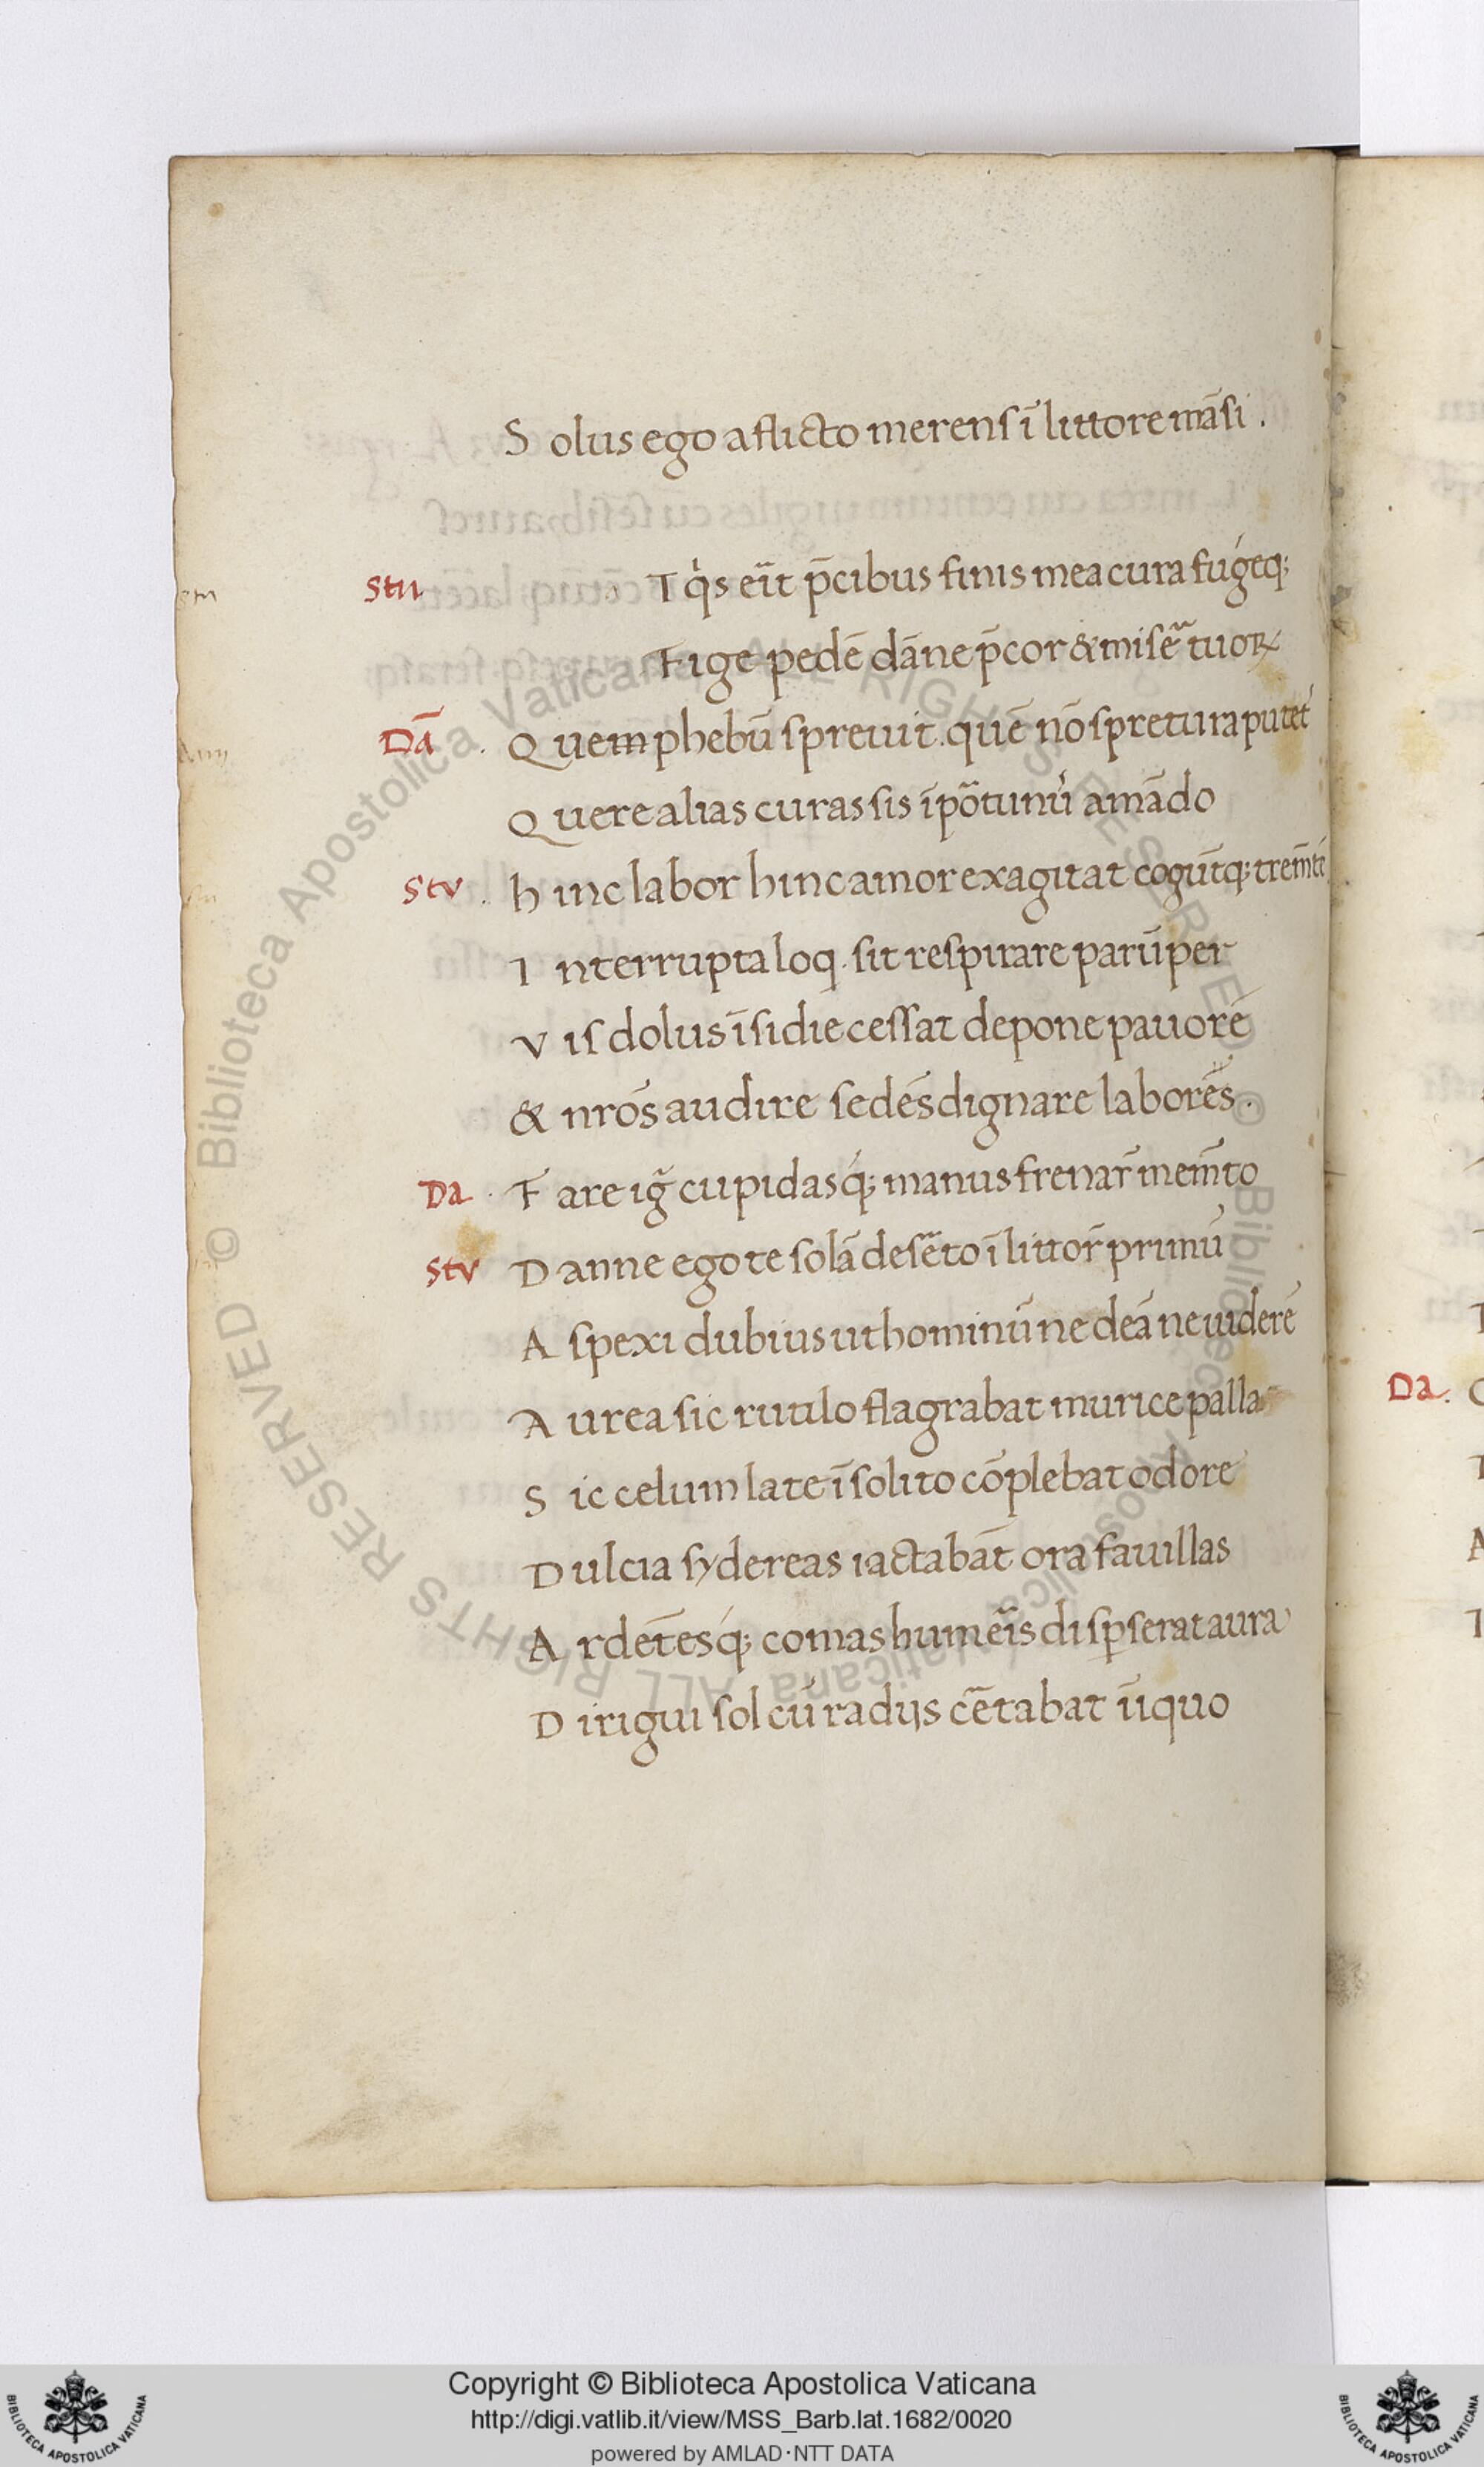 S olus ego aflicto merens ī littore māsi.
Stu T qͥs eīt p̄cibus finis mea cura fugeq;
Fige pedē dāne p̄cor & miseᷓ tuoꝝ
Dā Q uem phebū sprevit. quē nō spretura putet᷑
Q uere alias curas sis īpoᷓtunꝰ amādo
Stv. h inc labor hinc amor exagitat cogūtq; trem̄ti
I nterrupta loq. sit respirare parūper
V is dolus īsidie cessat depone pauorē
& nr̄os audire sedēs dignare labores.
Da. F are igr̄ cupidasq; manus frenar̄ mem̄to
Stv D anne ego te solā desēto ī littor̄ primū
A spexi dubius ut hominū ne deā ne uiderē
A urea sic rutilo flagrabat murice palla
S ic celum late īsolito cōplebat odore
D ulcia sydereas iactabāt ora fauillas
A rdētesq; comas humeīs disꝑserat aura
D irigui sol cū radijs cētabat ūquo
Da.
Copyright © Biblioteca Apostolica Vaticana
http://digi.vatlib.it/view/MSS_Barb.lat.1682/0020
powered by AMLAD·NTT DATA